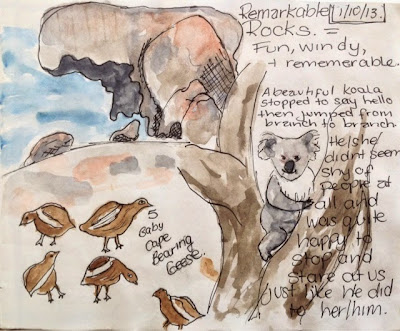 Remarkable 1/10/13.
Rocks. =
Fun, windy,
+ rememerable.
A beautiful koala
stopped to say hello
then jumped from
branch to branch
He/she
didnt seem
shy of
people at
all and
was quite
happy to
stop and
stare at us
just like we did
to her/him.
5
Baby
Cape
Bearing
Geese.